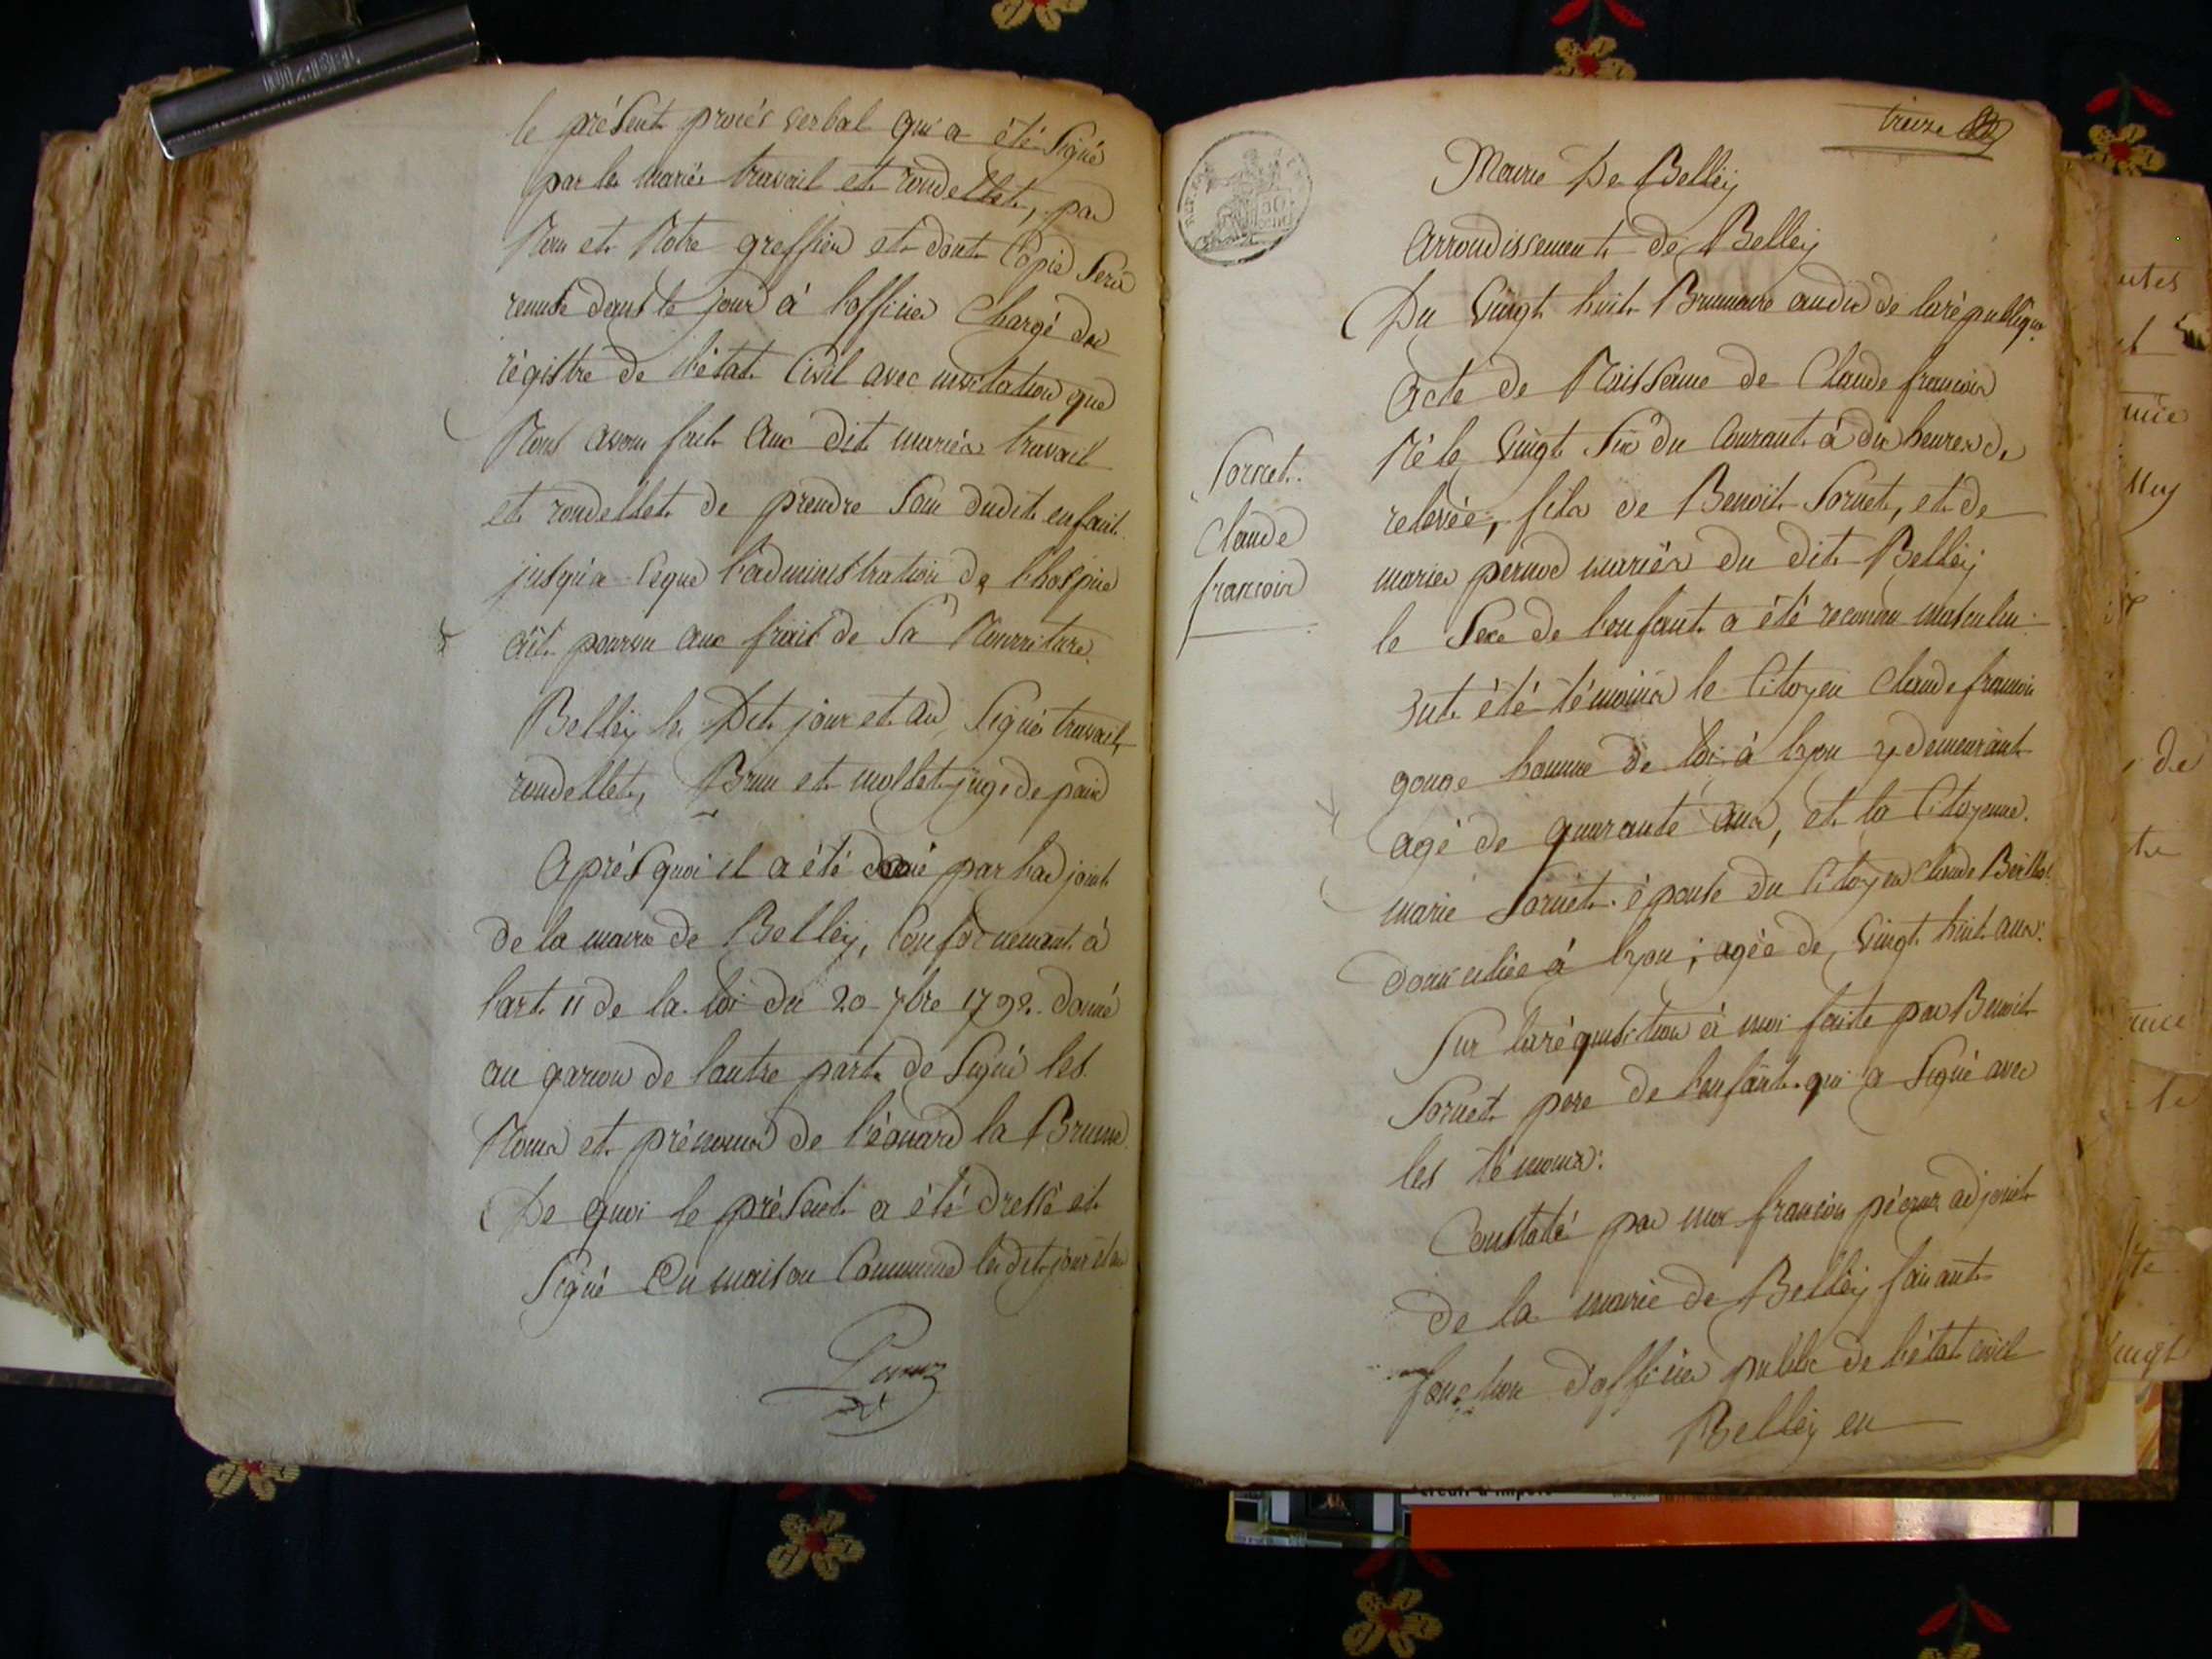 le présent procés verbal qui a été signé
par les mariés travail et rondellet, par
Nous et Notre greffier et dont Copie sera
remise dans le jour à l'officier Chargé du
régistre de l'état Civil avec invitation que
Nous avons fait aux dit mariés travail
et rondellet de prendre soin dudit enfant
jusqu'a ceque l'administration de l'hospice
ait pourvu aux frais de sa Nourriture.
Belley les Dit jour et an signés travail,
rondellet, Brun et mollet juge de paix
Aprés quoi il a été donné par l'adjoint
de la mairie de Belley, Conformement à
l'art. 11 de la loi du 20 7bre 1792. donné
au garçon de l'autre part de signé les
Noms et prénoms de léonard la Brune
De quoi le présent a été dressé et
signé En maison Commune les dit jour et an
treize
Mairie De Belley
Arrondissement de Belley
Du vingt huit Brumaire an dix de la république
Acte de Naissance de Claude françois
Né le vingt six du Courant à dix heures de
relevée, fils de Benoit Sornet, et de
marie pernod mariés du dit Belley
le sexe de l'enfant a été reconnu masculin.
ont été témoins le Citoyen Claude françois
gouge homme de loi à lyon y demeurant
agé de quarante ans, et la Citoyenne
marie Sornet épouse du Citoyen Claude
domiciliée à lyon; agée de vingt huit ans.
Sur la réquisition à moi faite par Benoit
Sornet pere de l'enfant qui a signé avec
les témoins.
Constaté par moi françois adjoint
de la mairie de Belley faisant
fonction d'officier public de l'état civil
Belley en
Sornet.
Claude
françois